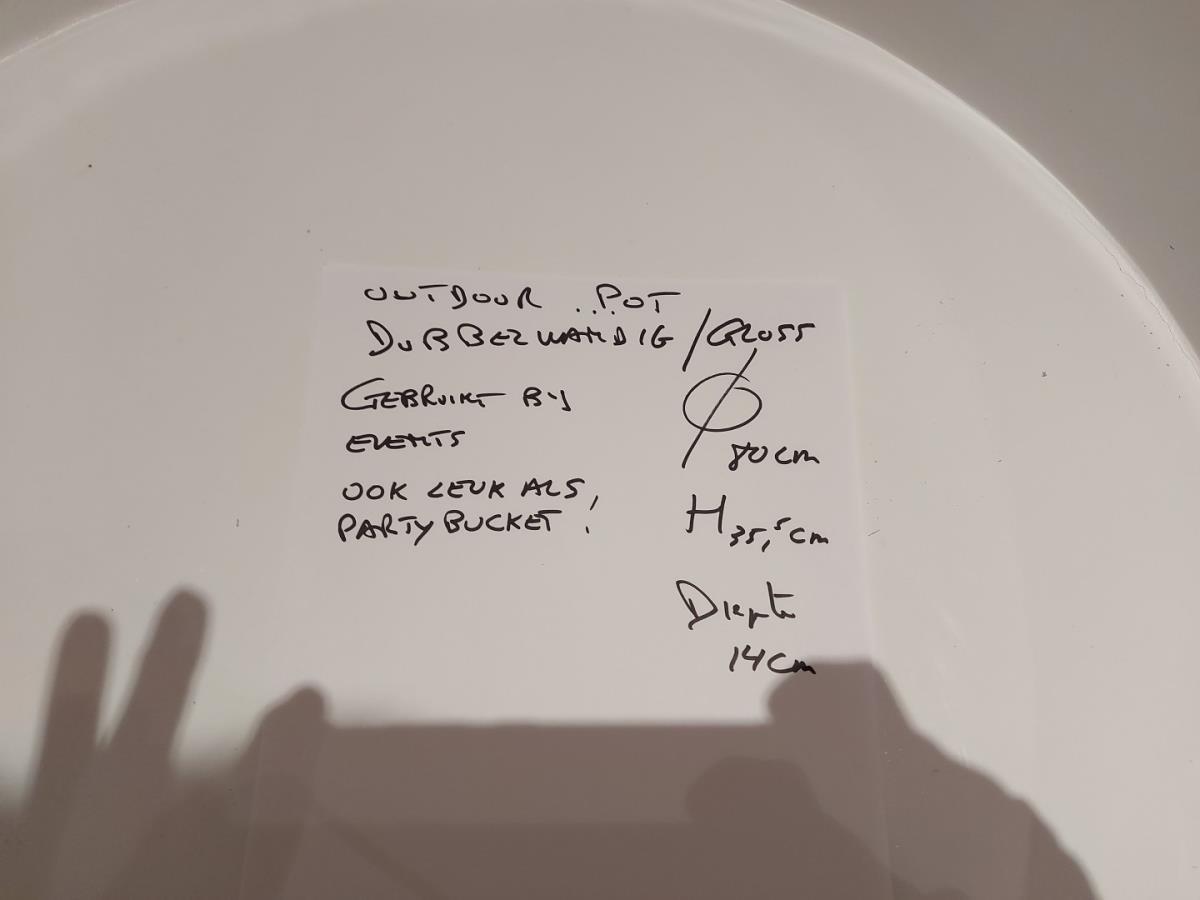 OUTDOOR ..POT
DUBBELWANDIG/GLOSS
GEBRUIKT BIJ
EVENTS
OOK LEUK ALS,
PARTYBUCKET!
Ø
80cm
H 35,5cm
Diepte
14cm